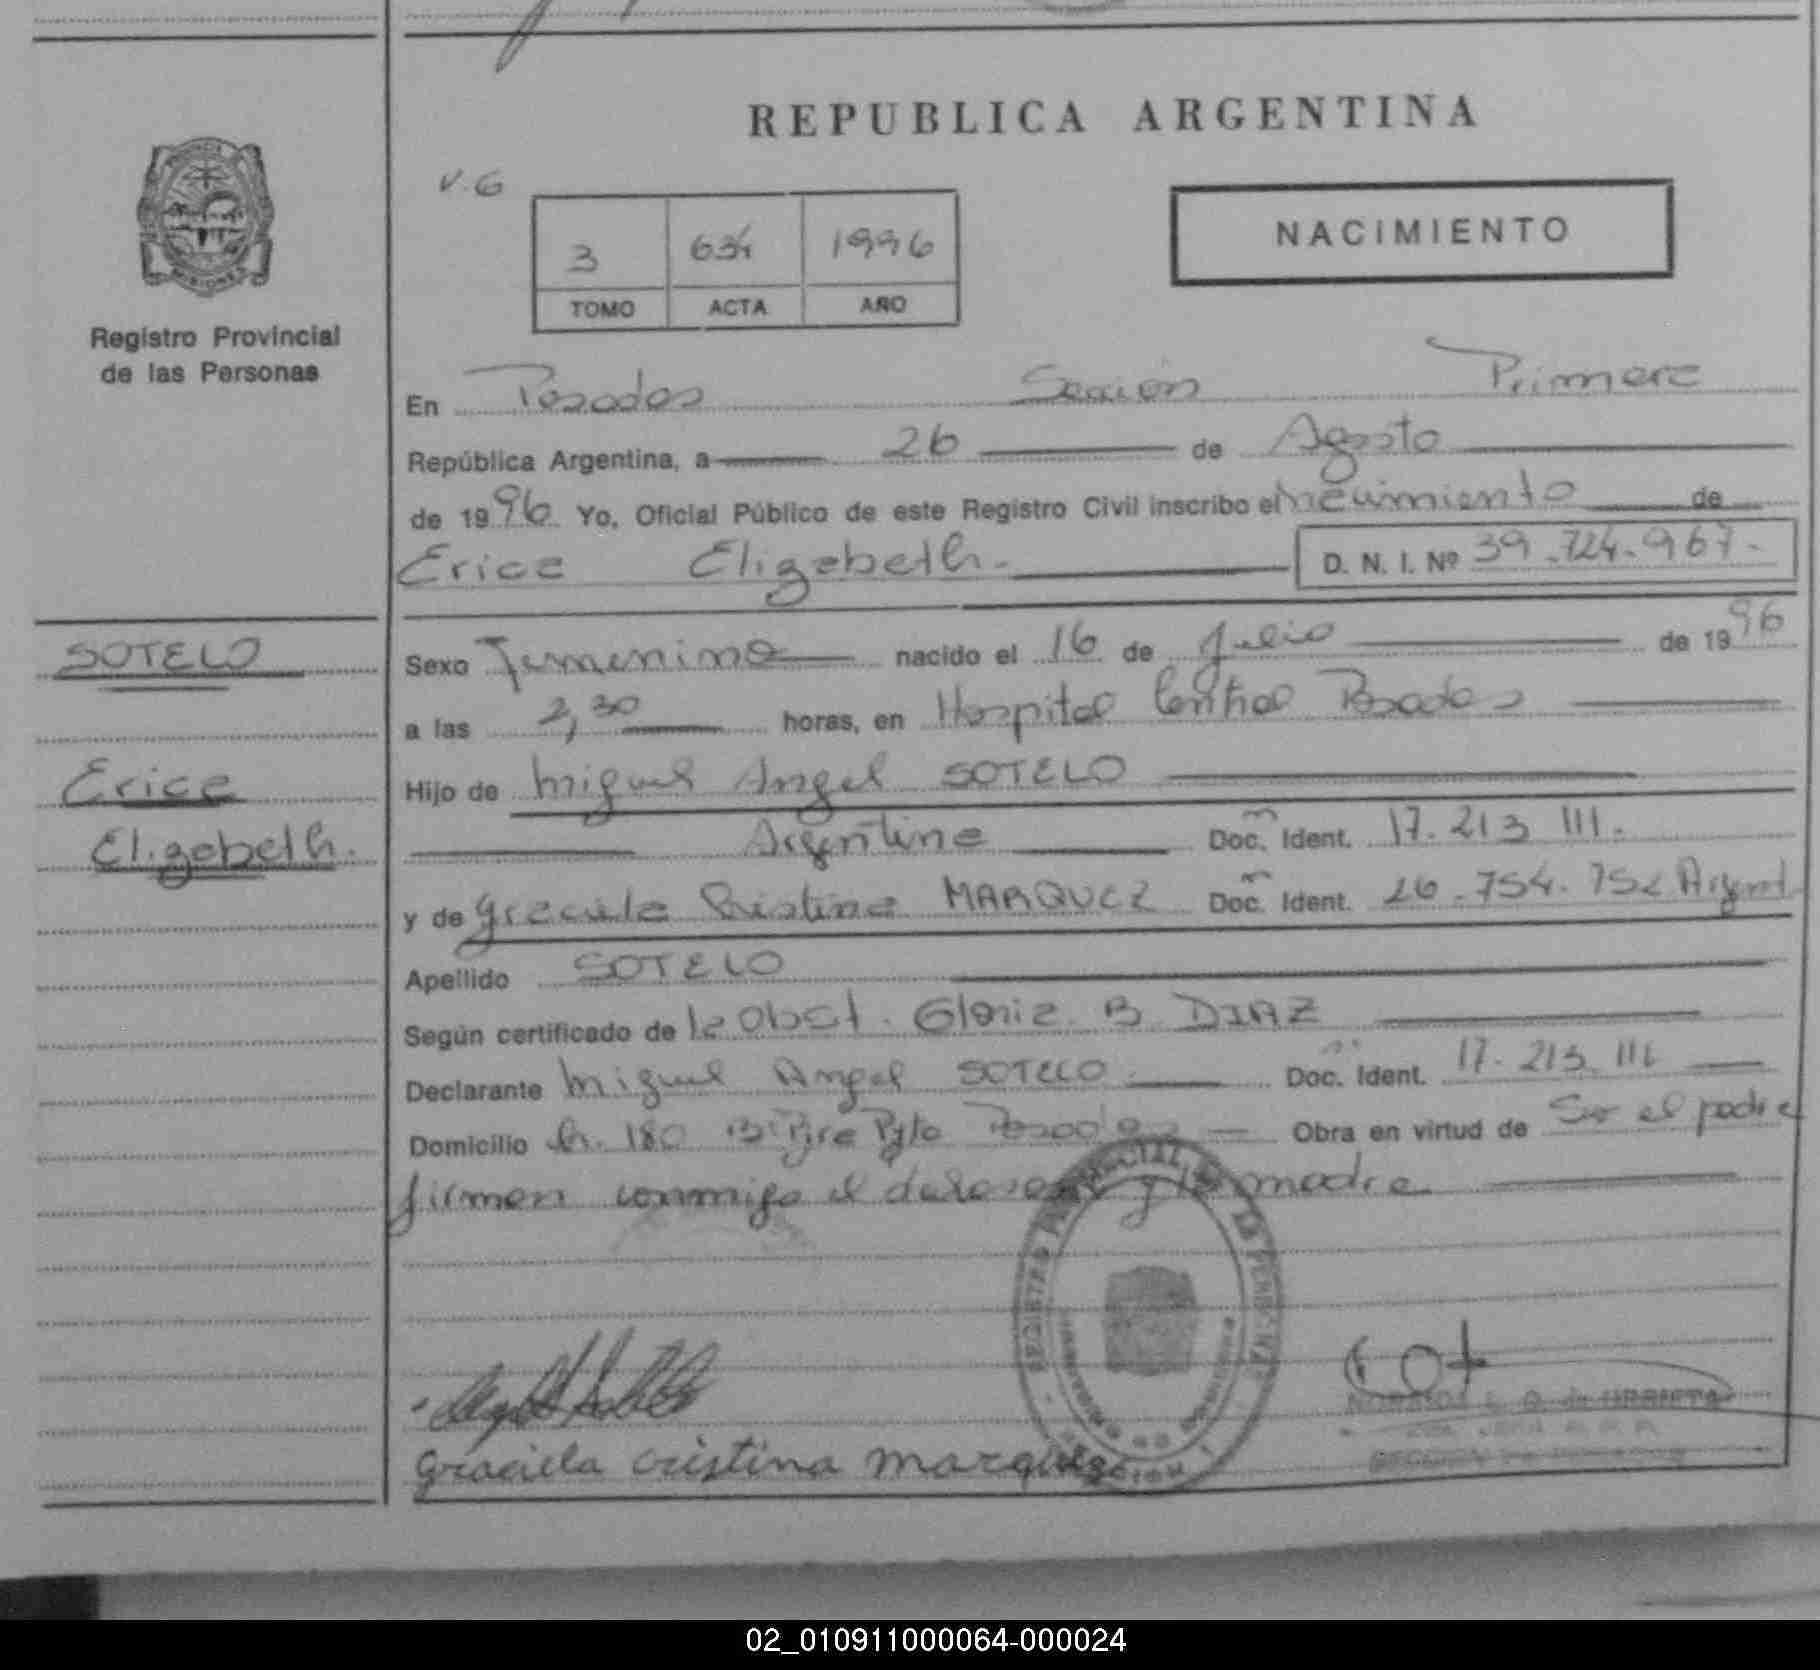 REPUBLICA ARGENTINA
V.G
3 634 1996
TOMO ACTA AÑO
NACIMIENTO
MISIONES
Registro Provincial
de las Personas
En Posadas Sección Primera
República Argentina, a 26 de Agosto
de 1996 Yo, Oficial Público de este Registro Civil inscribo el nacimiento de
Erica Elizabeth. D. N. I. Nº 39.724.967.
SOTELO
Erica
Elizabeth.
Sexo Femenino nacido el 16 de Julio de 1996
a las 2,30 horas, en Hospital Central Posadas
Hijo de Miguel Angel SOTELO
Argentina Doc. Ident. 17.213.111.
y de Graciela Cristina MARQUEZ Doc. Ident. 26.754.752 Argent.
Apellido SOTELO
Según certificado de la Obst. Gloria B. DIAZ
Declarante Miguel Angel SOTELO Doc. Ident. 17.213.111
Domicilio Ch. 180 Bº Posadas Obra en virtud de Ser el padre
firman conmigo el declarante y la madre.
Graciela cristina marquez
02_010911000064-000024